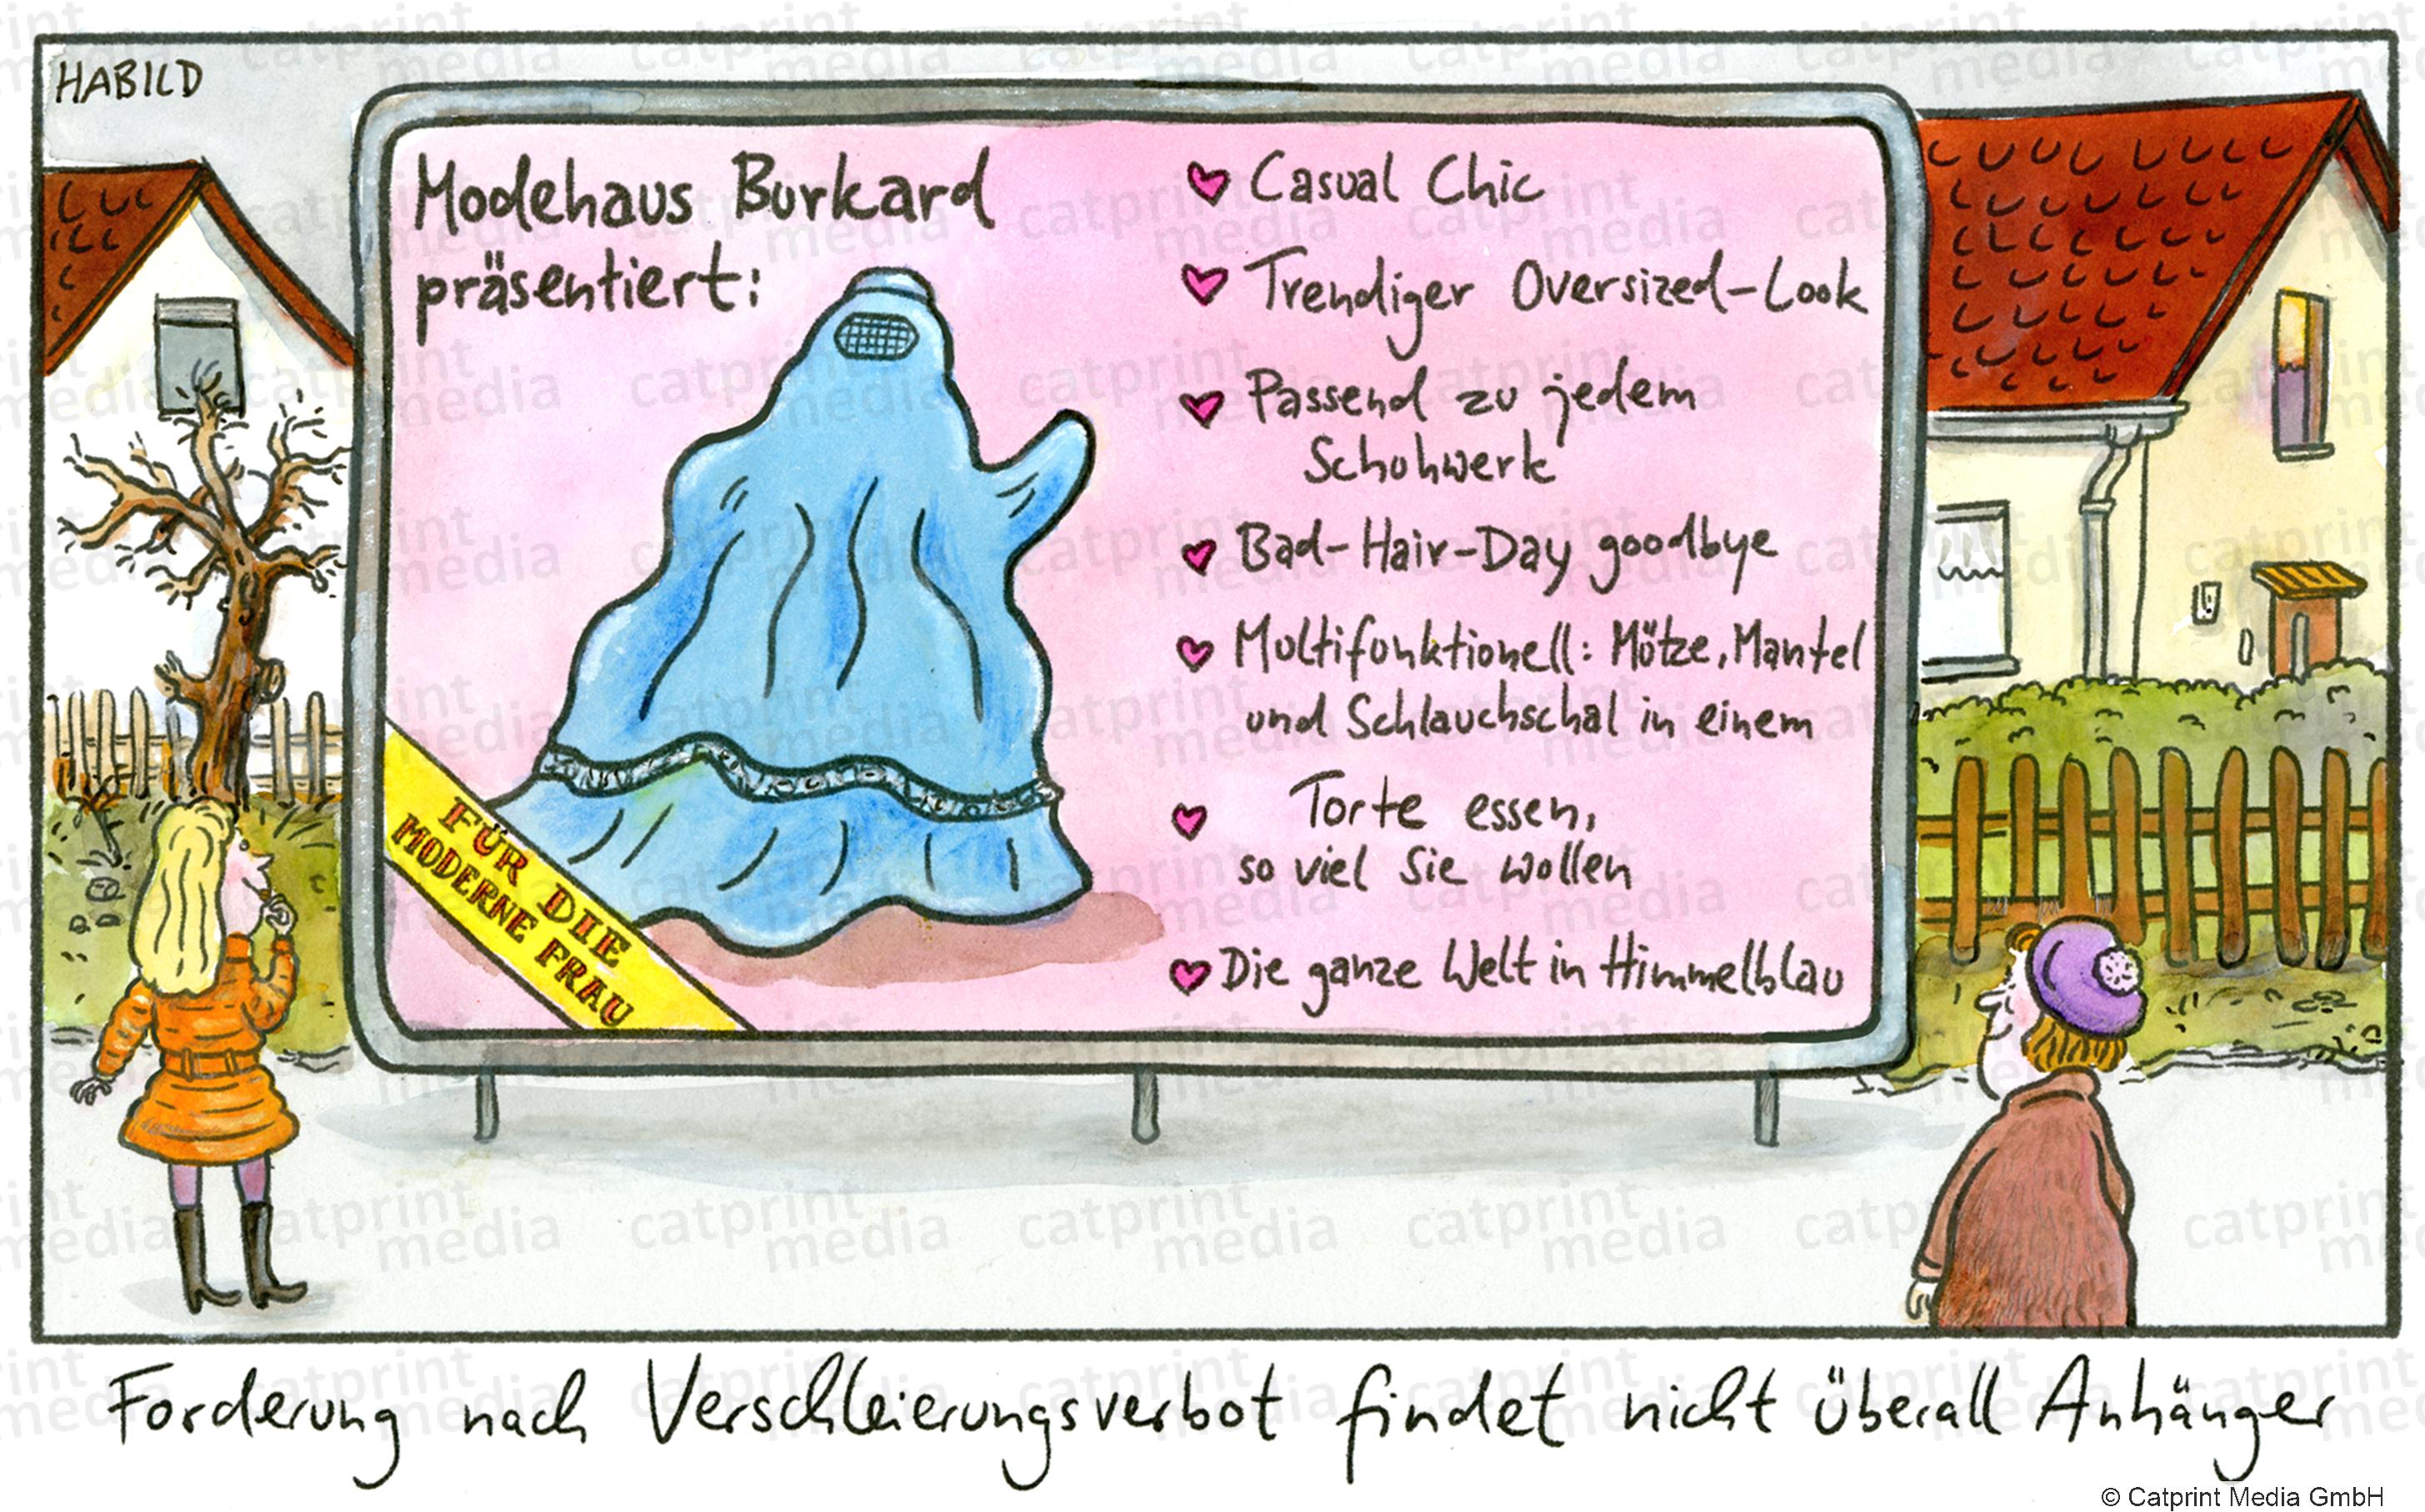 HABILD
Modehaus Burkard
präsentiert:
Casual Chic
Trendiger Oversized-Look
Passend zu jedem
Schuhwerk
Bad-Hair-Day goodbye
Multifunktionell: Mütze, Mantel
und Schlauchschal in einem
Torte essen,
so viel Sie wollen
Die ganze Welt in Himmelblau
FÜR DIE
MODERNE FRAU
Forderung nach Verschleierungsverbot findet nicht überall Anhänger
© Catprint Media GmbH
catprint
media